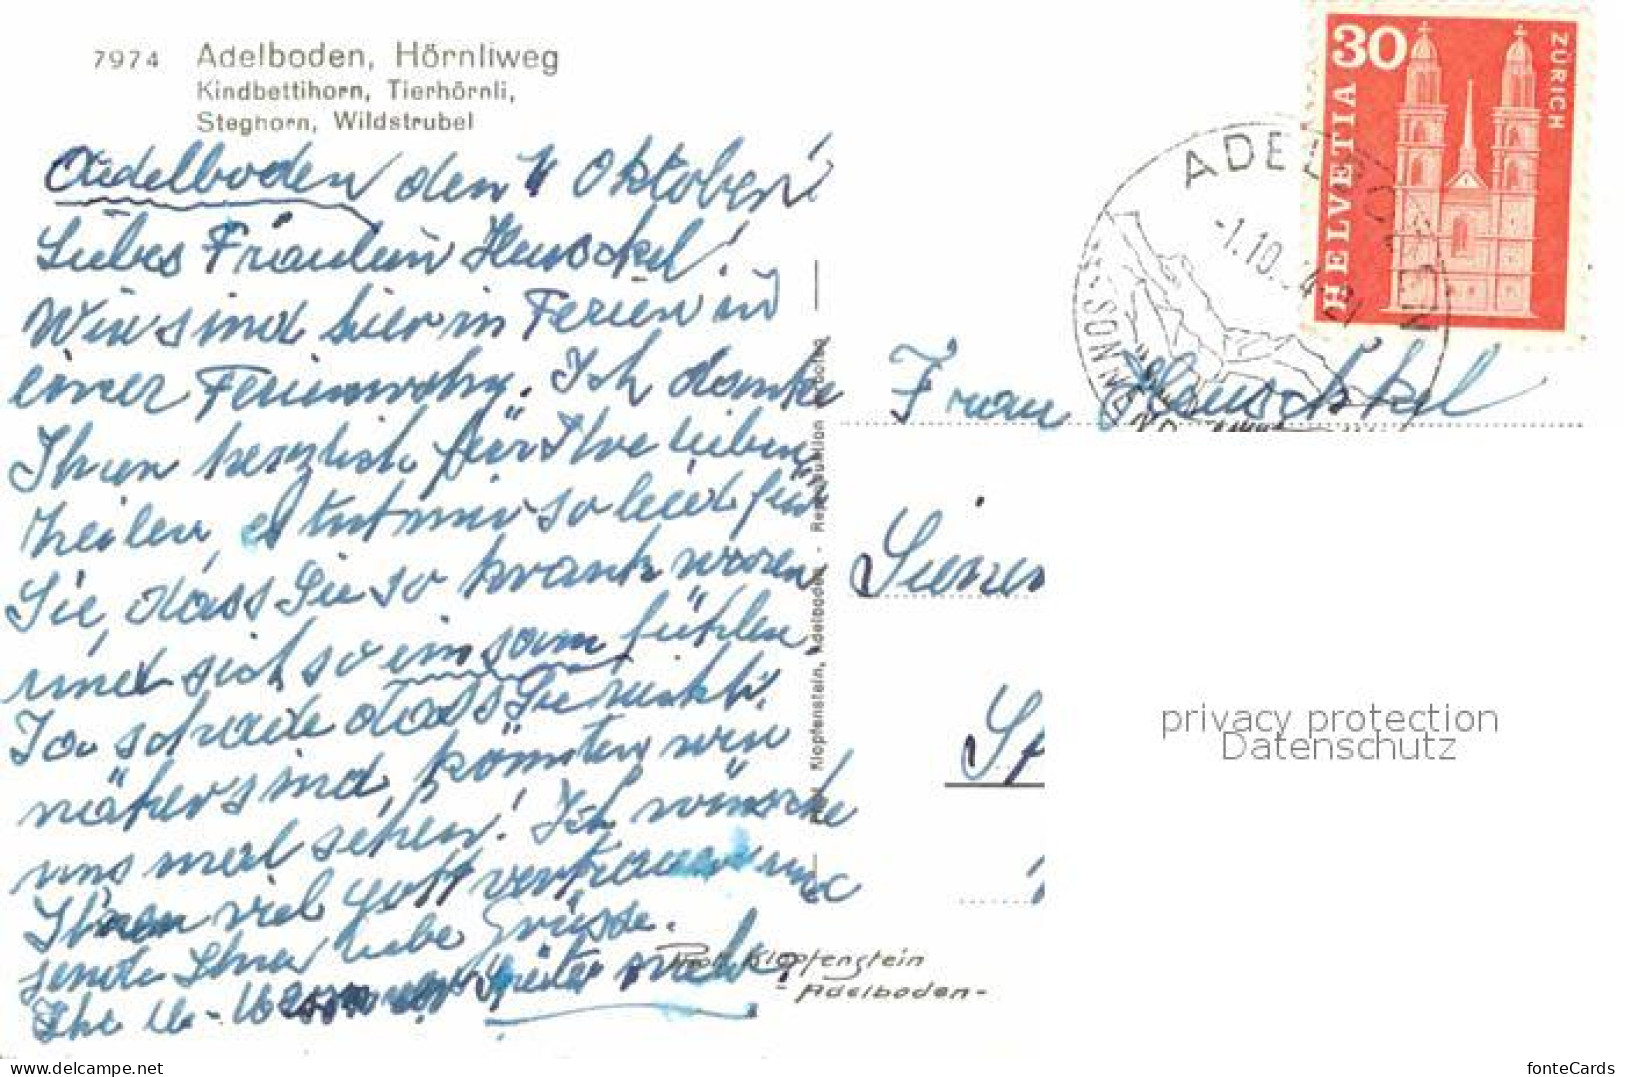 7974 Adelboden, Hörnliweg
Kindbettihorn, Tierhörnli,
Steghorn, Wildstrubel
Adelboden den 1 Oktober!
Liebes Fräulein Henschkel!
Wir sind hier in Ferien in
einer Ferienwohng. Ich danke
Ihnen herzlich für Ihre lieben
Zeilen, es tut mir so leid für
Sie, dass Sie so krank waren
und sich so einsam fühlen.
Ja schade dass Sie nicht
näher sind, könnten wir
uns mal sehen! Ich wünsche
Ihnen viel Gottvertrauen und
sende Ihnen liebe Grüsse.
Ihr
später mehr
Phot. Klopfenstein
Adelboden-
Klopfenstein, Adelboden. - Reproduktion verboten
HELVETIA
30
ZÜRICH
ADELBODEN
-1.10.
Frau Henschkel
privacy protection
Datenschutz
www.delcampe.net
fonteCards